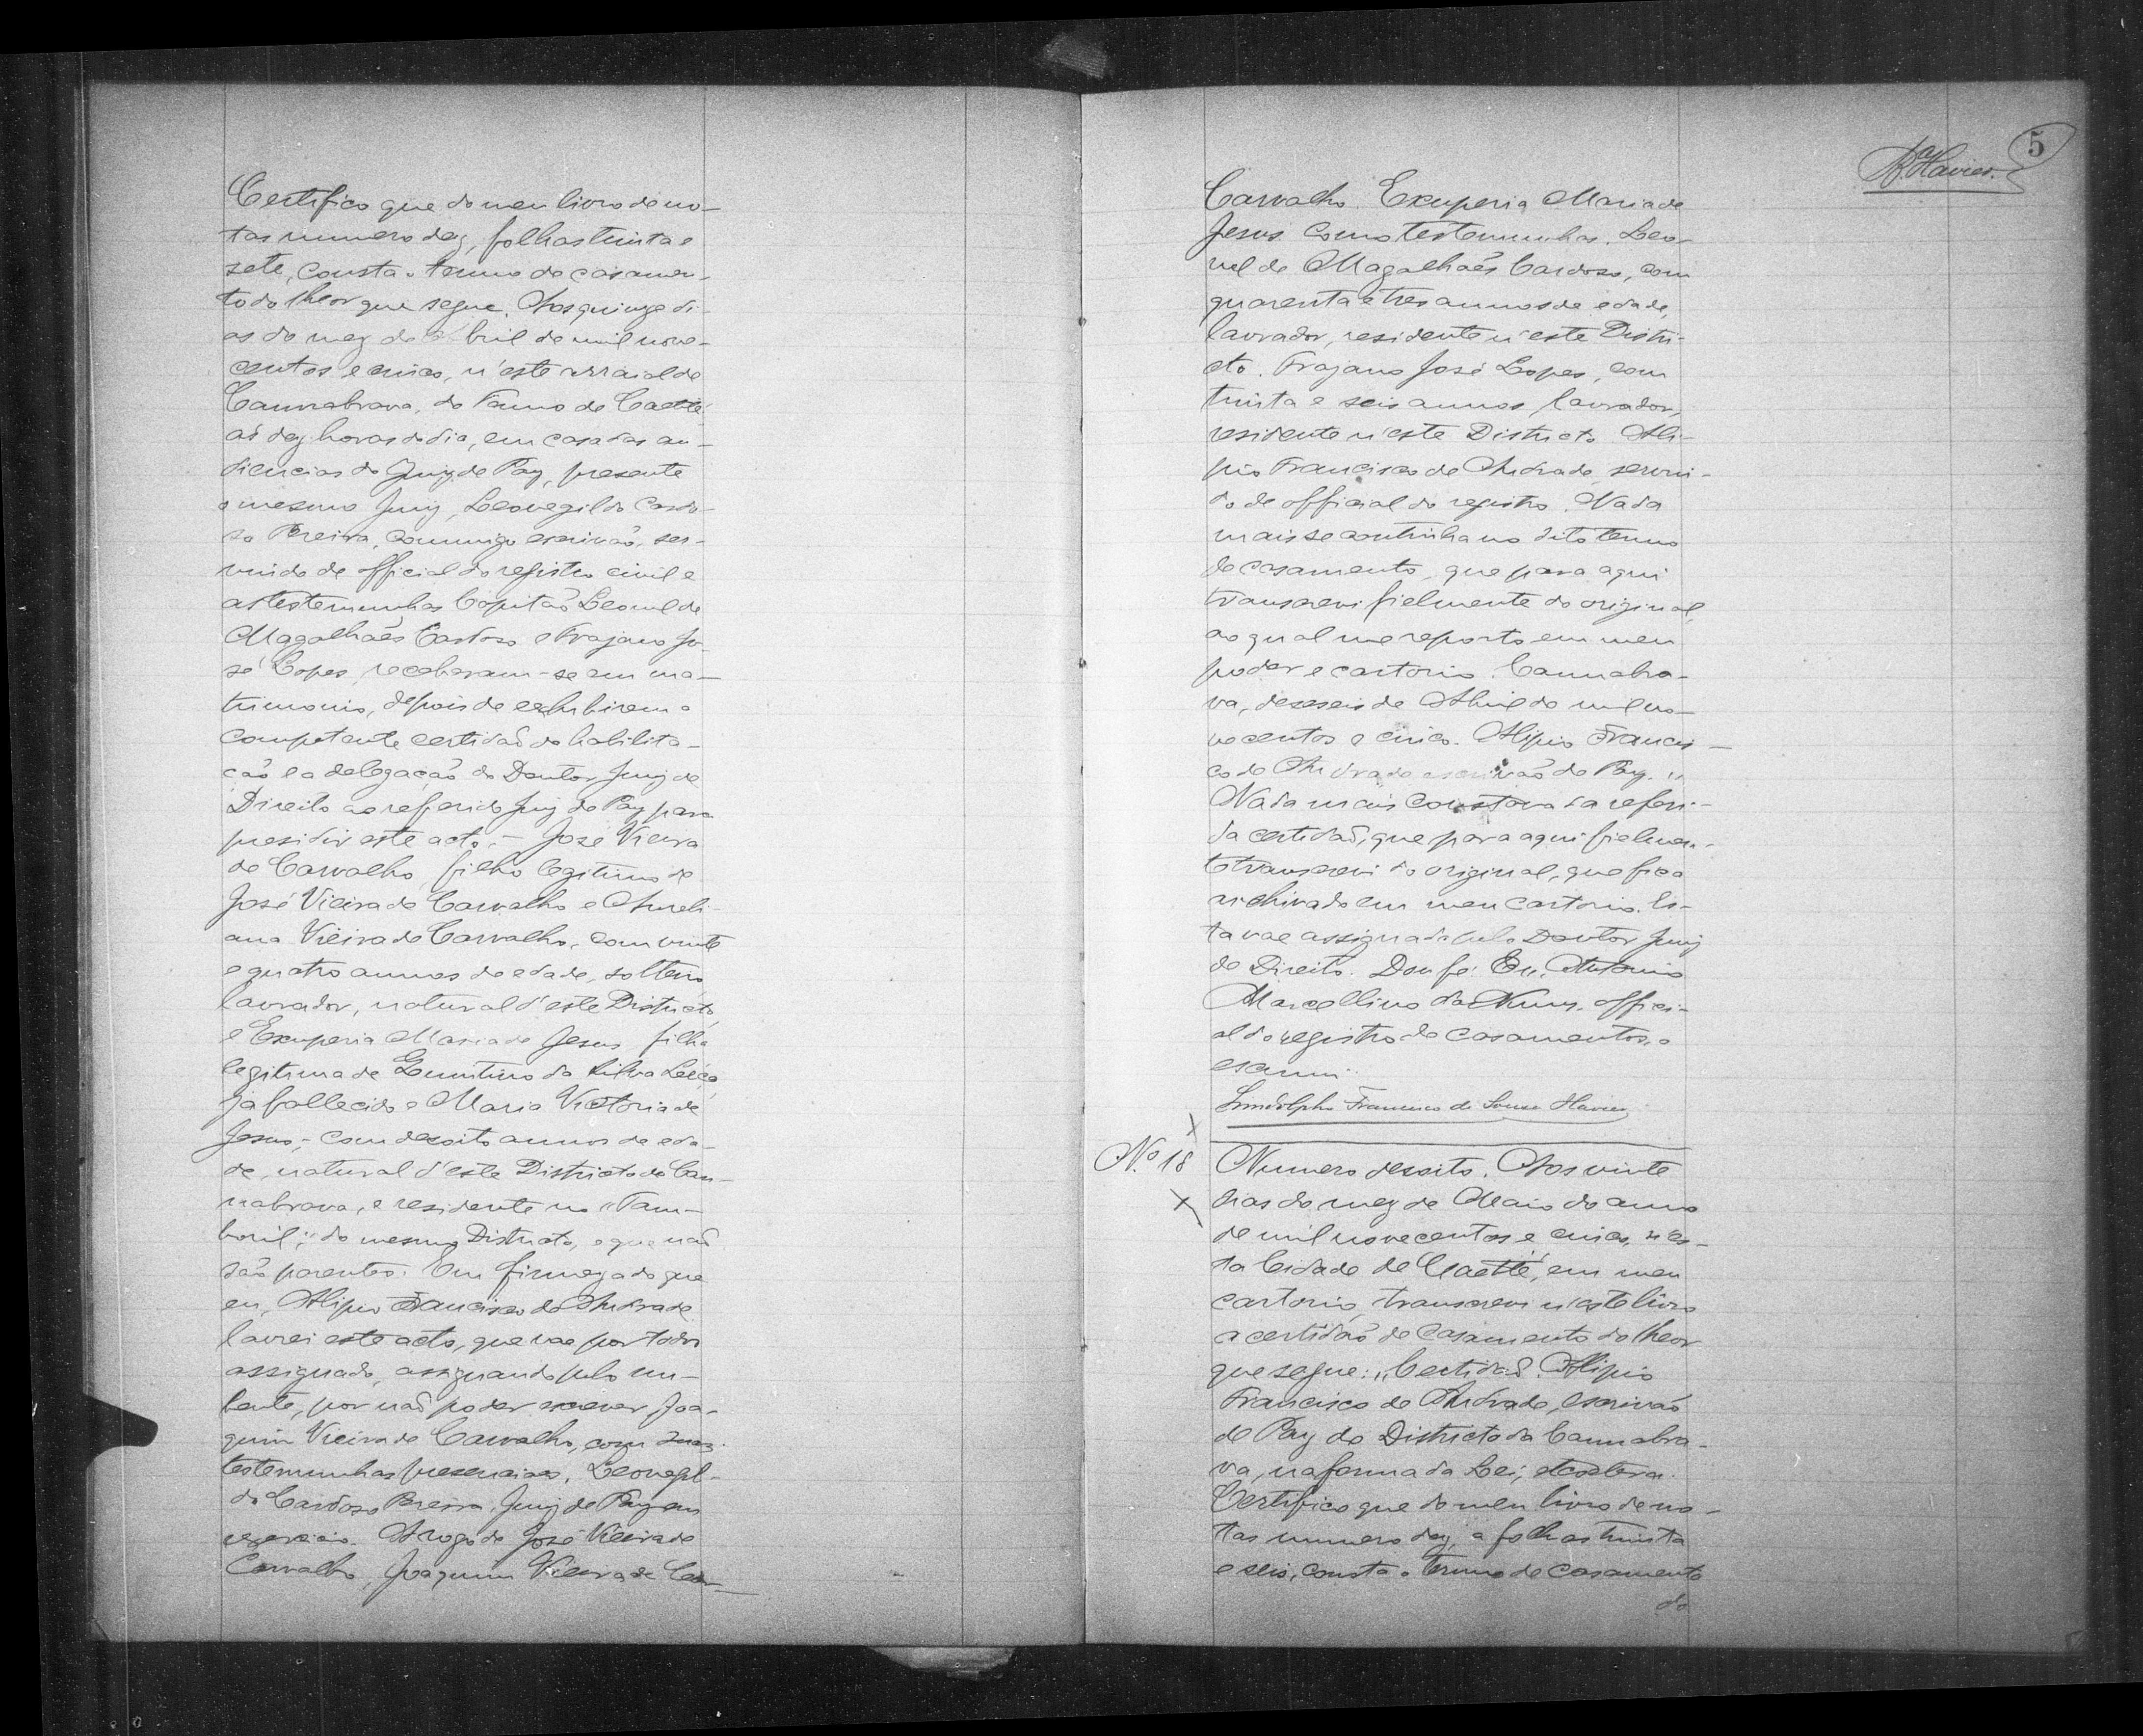 Certifico que do meu livro de no-
tas numero dez, folhas trinta e
sete, consta o termo de casamen-
to do theor que segue. Aos quinze di-
as do mez de Abril de mil nove-
centos e cinco, n'este arraial de
Cannabrava, do Termo de Caetté,
ás dez horas do dia, em casa das au-
diencias do Juiz de Paz, presente
o mesmo Juiz, Leovegildo Cardo-
so Pereira, commigo escrivão, ser-
vindo de official do registro civil e
as testemunhas Capitão Leonel de
Magalhães Cardoso e Trajano Jo-
sé Lopes, receberam-se em ma-
trimonio, depois de exhibirem a
competente certidão de habilita-
ção e a delegação do Doutor Juiz de
Direito ao referido Juiz de Paz para
presidir este acto,- José Vieira
de Carvalho, filho legitimo de
José Vieira de Carvalho e Aureli-
ana Vieira de Carvalho, com vinte
e quatro annos de edade, solteiro
lavrador, natural d'este Districto,
e Exuperia Maria de Jesus, filha
legitima de da Silva
ja fallecido e Maria Victoria de
Jesus,- com desoito annos de eda-
de, natural d'este Districto de Can-
nabrava, e residente no "Tam-
boril", do mesmo Districto, e que não
são parentes. Em firmeza do que
eu, Alipio Francisco de Andrade
lavrei este acto, que vae por todos
assignado, assignando pelo nu-
bente, por não poder escrever Joa-
quim Vieira de Carvalho, com
testemunhas presenciaes. Leovegil-
do Cardoso Pereira, Juiz de Paz em
exercicio. A rogo de José Vieira de
Carvalho, Joaquim Vieira de Car-
5
Carvalho. Exuperia Maria de
Jesus. Como testemunhas. Leo-
nel de Magalhães Cardoso, com
quarenta e tres annos de edade,
lavrador, residente n'este Distri-
cto. Trajano José Lopes, com
trinta e seis annos, lavrador,
residente n'este Districto. Ali-
pio Francisco de Andrade, servin-
do de official do registro. Nada
mais se continha no dito termo
de casamento, que para aqui
transcrevi fielmente do original,
ao qual me reporto em meu
poder e cartorio. Cannabra-
va, deseseis de Abril de mil no-
vecentos e cinco. Alipio Francis-
co de Andrade escrivão de Paz."
Nada mais constava da referi-
da certidão, que para aqui fielmen-
te transcrevi do original, que fica
archivado em meu cartorio. Es-
ta vae assignada pelo Doutor Juiz
de Direito. Dou fé. Eu, Antonio
Marcellino das Neves, offici-
al do registro de casamentos, o
escrevi.
Lindolpho Francisco de Souza
Nº 18 Numero desoito. Aos vinte
dias do mez de Maio do anno
de mil novecentos e cinco, n'es-
ta Cidade de Caetté, em meu
cartorio, transcrevi n'este livro
a certidão de casamento do theor
que segue: "Certidão. Alipio
Francisco de Andrade, escrivão
de Paz do Districto da Cannabra-
va, na forma da Lei, etcetera.
Certifico que do meu livro de no-
tas numero dez, a folhas trinta
e seis, consta o termo de casamento
do